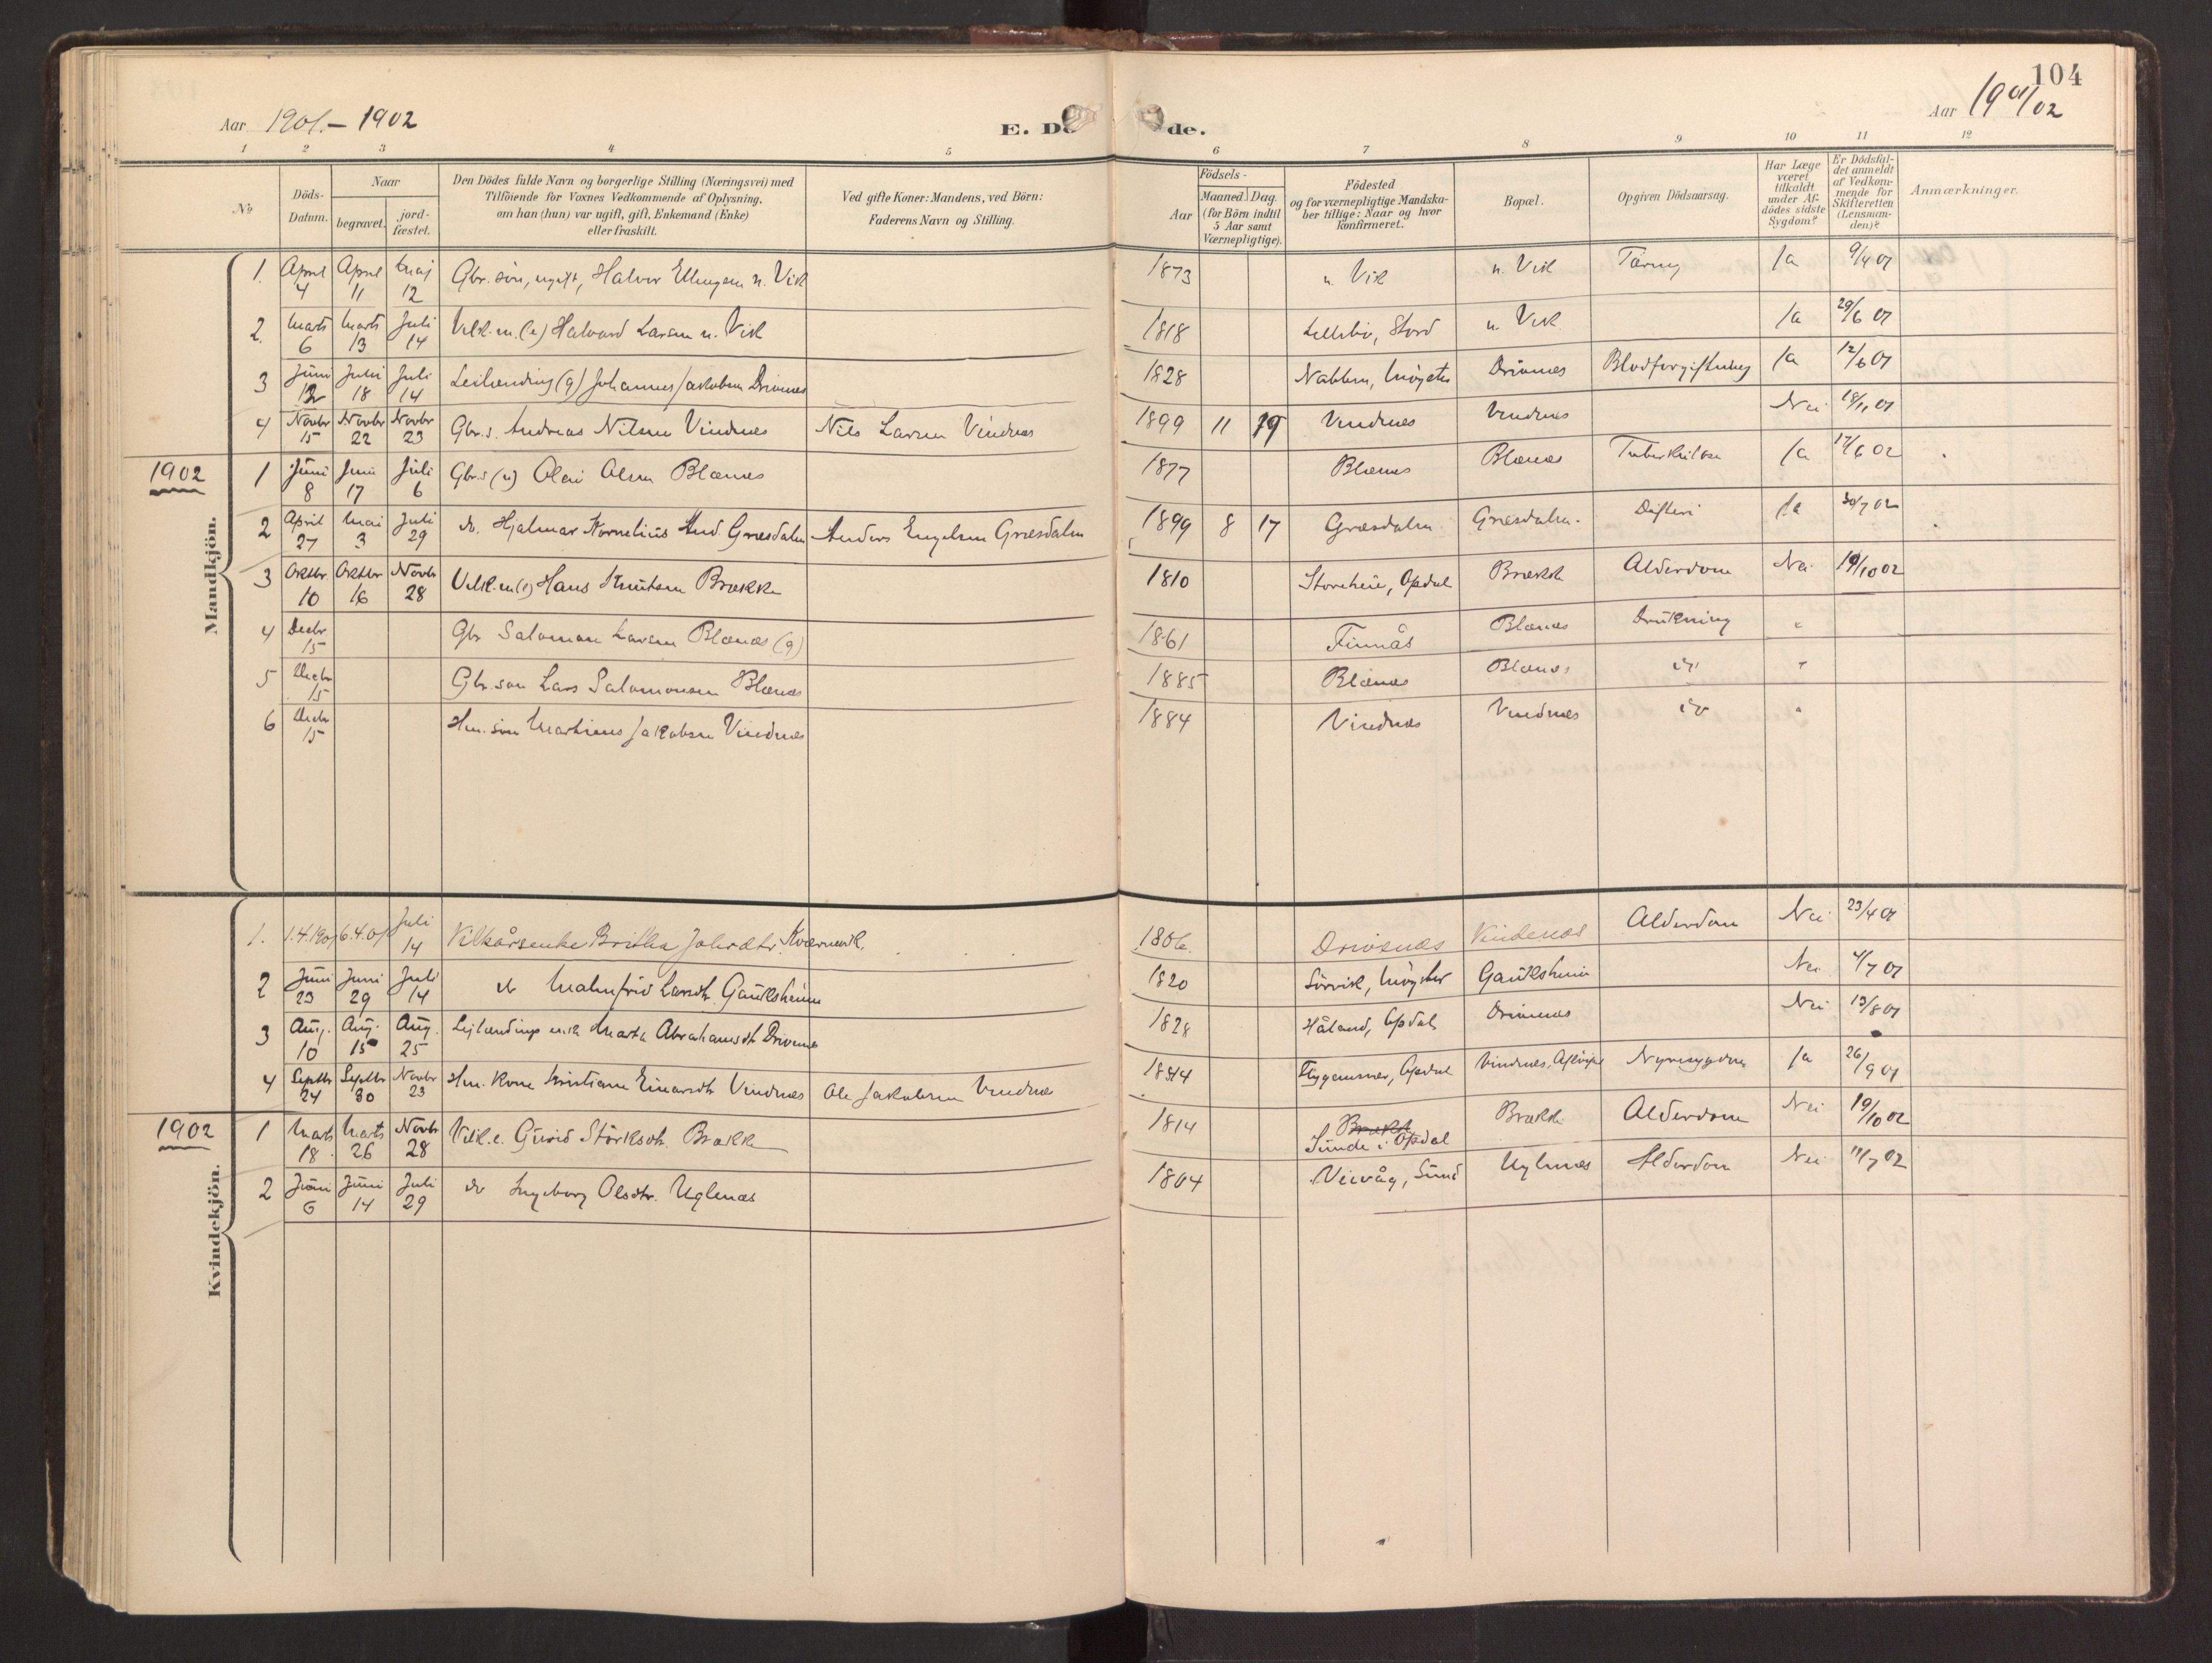 104
Aar 1901.- 1902
E. Dö de.
Aar 1901/02
1 2 3 4 5 6 7 8 9 10 11 12
No
Döds-Datum.
Naar
begravet.
jord-fæstet.
Den Dödes fulde Navn og borgerlige Stilling (Næringsvei) med
Tilföiende for Voxnes Vedkommende af Oplysning,
om han (hun) var ugift, gift, Enkemand (Enke)
eller fraskilt.
Ved gifte Koner: Mandens, ved Börn:
Faderens Navn og Stilling.
Födsels-
Aar
Maaned. Dag.
(for Börn indtil
5 Aar samt
Værnepligtige).
Födested
og for værnepligtige Mandska-
ber tillige: Naar og hvor
konfirmeret.
Bopæl.
Opgiven Dödsaarsag.
Har Læge
været
tilkaldt
under Af-
dödes sidste
Sygdom?
Er Dödsfal-
det anmeldt
af Vedkom-
mende for
Skifteretten
(Lensman-
den)?
Anmærkninger.
Mandkjön.
1. April 4 April 11 Maj 12 Gbr. sön, ugift, Halvor Ellingsen n. Vik 1873 n. Vik n. Vik Tæring Ja 9/4 01
2. Marts 6 Marts 13 Juli 14 Vilk.m. (e) Halvard Larsen n. Vik 1818 Lillebö, Stord n. Vik Ja 29/6 01
3 Juni 12 Juni 18 Juli 14 Leilænding (g) Johannes Jakobsen Drivenes 1828 Nabben, Møgster Drivnes Blodforgiftning Ja 12/6 01
4 Novbr 15 Novbr 22 Novbr 23 Gbr.s. Andreas Nilsen Vindnes Nils Larsen Vindnes 1899 11 19 Vindnes Vindnes Nei 18/11 01
1902
1 Juni 8 Juni 17 Juli 6 Gbr.s (u) Olai Olsen Blænes 1877 Blænes Blænes Tuberkulose Ja 17/6 02
2 April 27 Mai 3 Juli 29 do. Hjalmar Kornelius And. Græsdalen Anders Engelsen Græsdalen 1899 8 17 Græsdalen Græsdalen. Difteri Ja 30/7 02
3 Oktbr. 10 Oktbr 16 Novbr 28 Vilk.m (e) Hans Knutsen Brække 1810 Storeheie, Opdal Brække Alderdom Nei 19/10 02
4 Decbr 15 Gbr Salomon Larsen Blænes (g) 1861 Finnås Blænes Drukning "
5 Decbr 15 Gbr. sön Lars Salomonsen Blænes 1885 Blænes Blænes do "
6 Decbr 15 Hm. sön Martinus Jakobsen Vindnes 1884 Vindnes Vindnes do "
Kvindekjön.
1. 1.4.1901 6.4.01 Juli 14 Vilkårsenke Britha Johs.dtr. Kværnevik. 1806. Drivenes Vindenes Alderdom Nei 23/4 01
2 Juni 23 Juni 29 Juli 14 do Malmfrid Larsdtr. Gauksheim 1820 Sörvik, Møgster Gauksheim Nei 4/7 01
3 Aug. 10 Aug. 15 Aug. 25 Leilændings enke Marta Abrahamsdtr Drivenes 1828 Håland, Opdal Drivenes Nei 13/8 01
4 Septbr 24 Septbr 30 Novbr 23 Hm. kone Kristiane Einarsdtr Vindnes Ole Jakobsen Vindnes Opdal Vindnes, Nyresygdom Ja 26/9 01
1902
1 Marts 18 Marts 26 Novbr 28 Vilk.e. Gurid Störksdtr. Brække 1814 Sunde i Opdal Brække Alderdom Nei 19/10 02
2 Juni 6 Juni 14 Juli 29 do Ingeborg Olsdtr. Uglenes 1804 Veivåg, Sund Uglenes Alderdom Nei 11/7 02